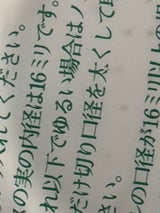 れてください。
の実の内径は16ミリです。
れ以下でゆるい場合は
だけ切り口径を太くして
さい。
の口径が16ミリ以